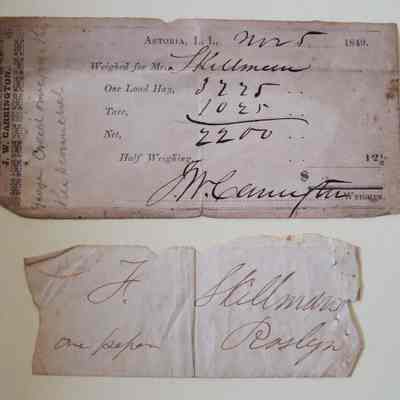 J. W. CARRINGTON.
ASTORIA, L. I., Nov 5 1849.
Weighed for Mr. Skillman
One Load Hay, 3225
Tare, 1025
Net, 2200
Half Weighing, $ 12½
J. W. Carrington WEIGHER.
F. Skillman
one paper Roslyn